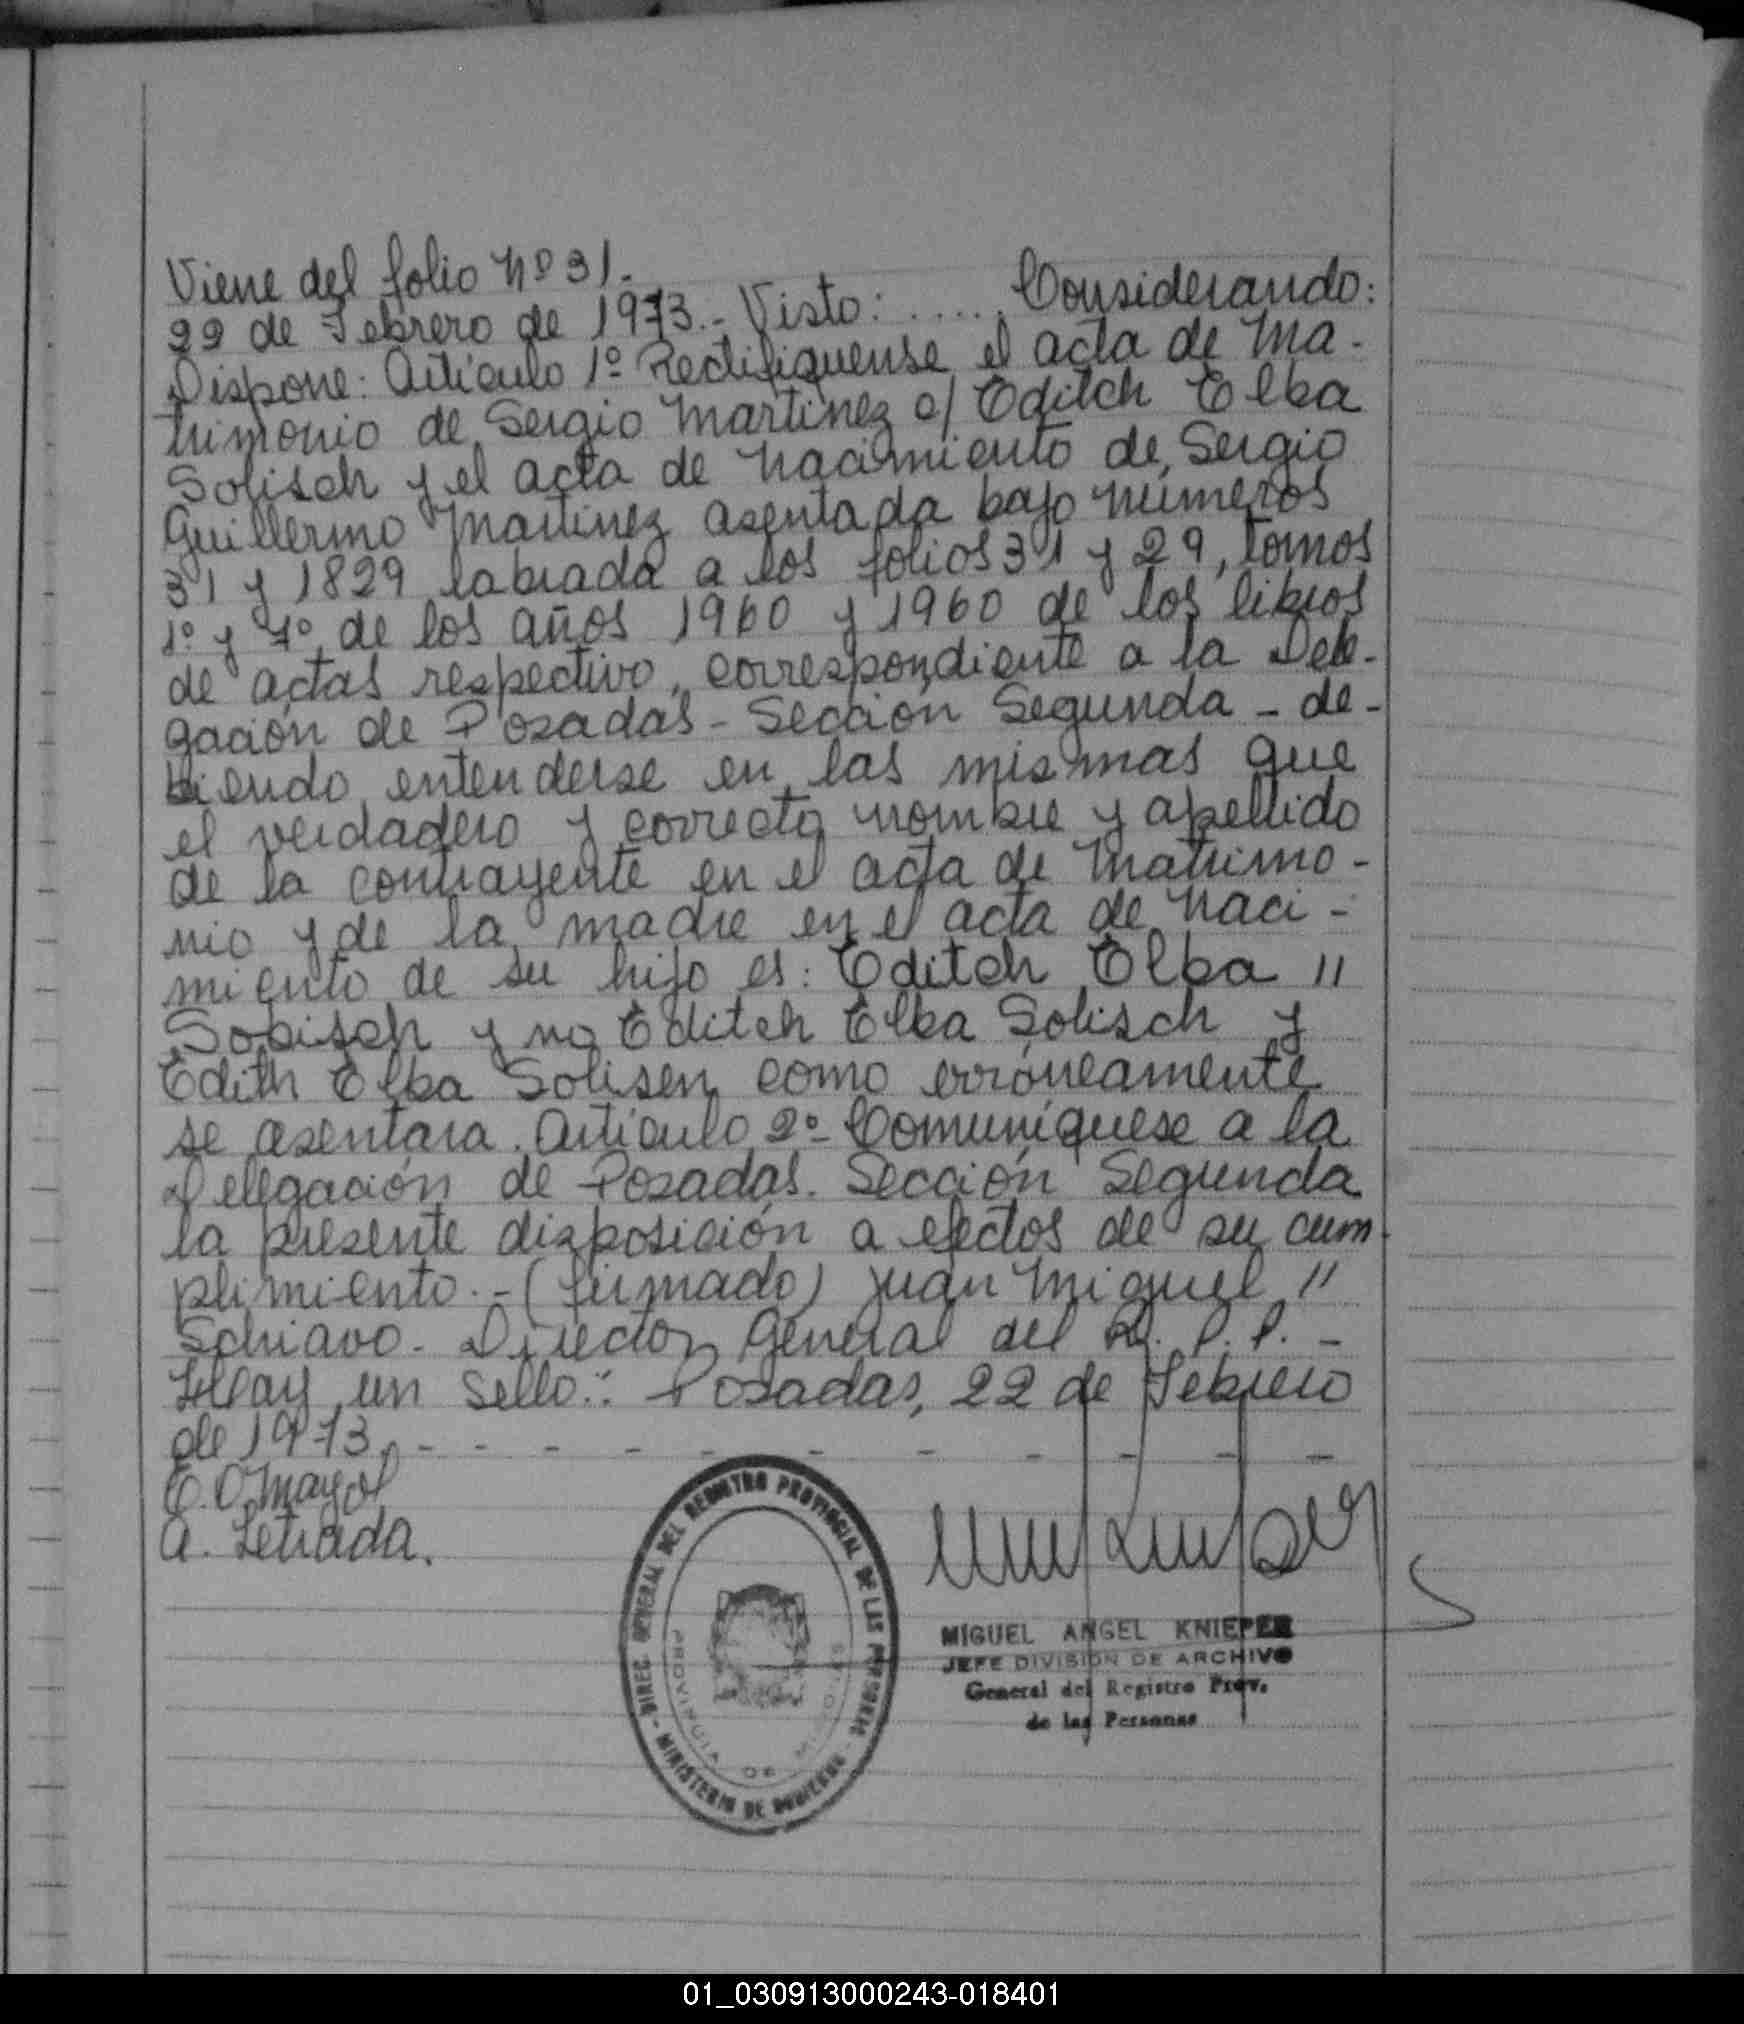 Viene del folio Nº 31.-
22 de Febrero de 1973.- Visto: ..... Considerando:
Dispone: Artículo 1º Rectifiquense el acta de Ma-
trimonio de Sergio Martinez c/ Editch Elba
Solisch y el acta de Nacimiento de Sergio
Guillermo Martinez asentada bajo números
31 y 1829 labrada a los folios 31 y 29, Tomos
1º y 7º de los años 1960 y 1960 de los libros
de actas respectivo, correspondiente a la Dele-
gación de Posadas - Sección Segunda - de-
biendo entenderse en las mismas que
el verdadero y correcto nombre y apellido
de la contrayente en el acta de Matrimo-
nio y de la madre en el acta de Naci-
miento de su hijo es: Editch Elba "
Sobisch y no Editch Elba Solisch y
Edith Elba Solisen como erróneamente
se asentara. Artículo 2º- Comuníquese a la
Delegación de Posadas. Sección Segunda
la presente disposición a efectos de su cum
plimiento.- (firmado) Juan Miguel "
Schiavo. Director General del R. P. P. -
Hay un sello.: Posadas, 22 de Febrero
de 1973. - - - - - - - - - - -
E. O. Mayol
A. Letrada.
DIREC. GENERAL DEL REGISTRO PROVINCIAL DE LAS PERSONAS - MINISTERIO DE GOBIERNO -
PROVINCIA DE MISIONES
MIGUEL ANGEL KNIEPER
JEFE DIVISION DE ARCHIVO
General del Registro Prov.
de las Personas
01_030913000243-018401